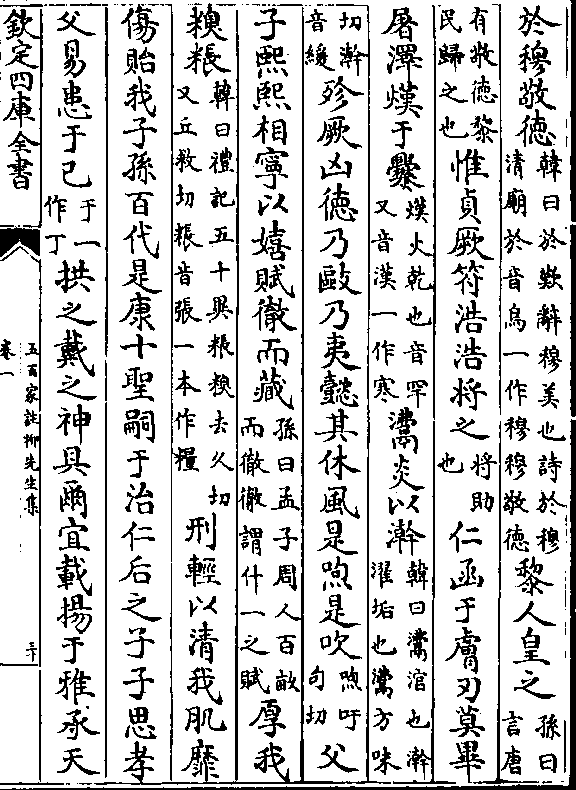 於穆敬德韓曰於歎辭穆美也詩於穆清廟於音烏一作穆穆敬德黎人皇之孫曰言唐
有敬德黎民歸之也惟貞厥符浩浩將之將助也仁函于膚刃莫畢
屠澤熯于爨熯火乾也音罕又音漢一作寒炎以澣韓曰涫也澣濯垢也方味
切澣音緩殄厥凶德乃敺乃夷懿其休風是喣是吹喣吁句切父
子熙熙相寧以嬉賦徹而藏孫曰孟子周人百畝而徹徹謂什一之賦厚我
糗粻韓曰禮記五十異粻糗去久切又丘救切粻音張一本作糧刑輕以清我肌靡
傷貽我子孫百代是康十聖嗣于治仁后之子子思孝
父易患于己于一作丁拱之戴之神具爾宜載揚于雅承天
欽定四庫全書
五百家註柳先生集
卷一
三十